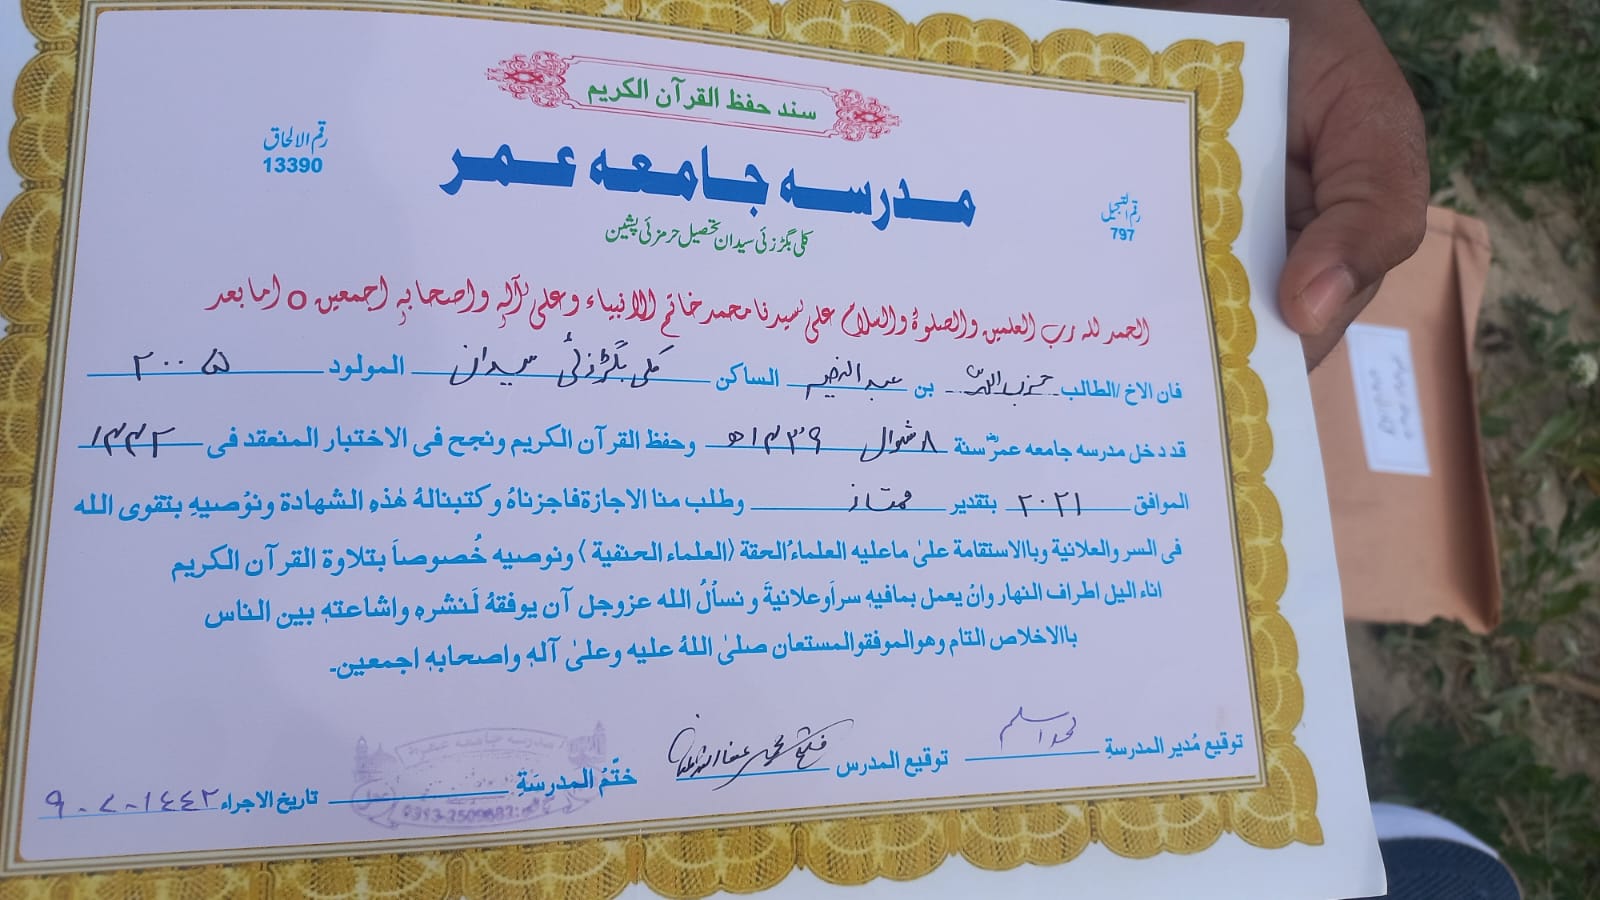 سند حفظ القرآن الكريم
رقم الالحاق
13390
مدرسه جامعه عمر
رقم التسجيل
797
کلی بگرزئی سیدان تحصیل حرمزئی پشین
الحمد لله رب العلمين والصلوة والسلام على سيدنا محمد خاتم الانبياء وعلى آله واصحابه اجمعين ○ اما بعد
فان الاخ /الطالب حزب اللہ بن عبد الرحیم الساكن کلی بگڑزئی سیدان المولود ۲۰۰۵
قد دخل مدرسه جامعه عمرؓ سنة ۸ شوال ۱۴۳۹ھ وحفظ القرآن الكريم ونجح فى الاختبار المنعقد فى ۱۴۴۲
الموافق ۲۰۲۱ بتقدير ممتاز وطلب منا الاجازة فاجزناهُ وكتبنالهُ هٰذهِ الشهادة ونوُصيهِ بتقوى الله
فى السر والعلانية وباالاستقامة علىٰ ماعليه العلماءُ الحقة (العلماء الحنفية) ونوصيه خُصوصاً بتلاوة القرآن الكريم
اناء اليل اطراف النهار وانُ يعمل بمافيهِ سراًوعلانيةً و نسأَلُ الله عزوجل آن يوفقهُ لَنشره واشاعته بين الناس
باالاخلاص التام وهوالموفقوالمستعان صلىٰ اللهُ عليه وعلىٰ آلهٖ واصحابهٖ اجمعين۔
توقيع مُدير المدرسةِ محمد اسلم توقيع المدرس ختّمُ المدرسَةِ تاريخ الاجراء ٩-٧-١٤٤٢
مدرسه جامعه عمر